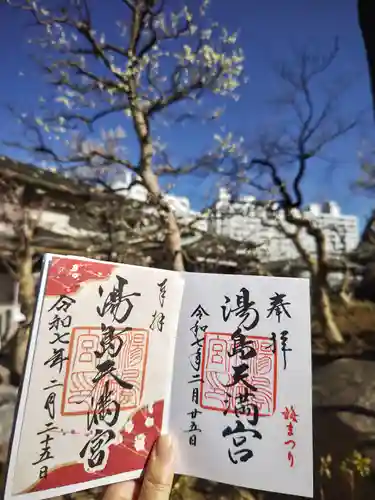 奉拝
湯島天満宮
令和七年二月二十五日
奉拝
湯島天満宮
令和七年二月廿五日
梅まつり